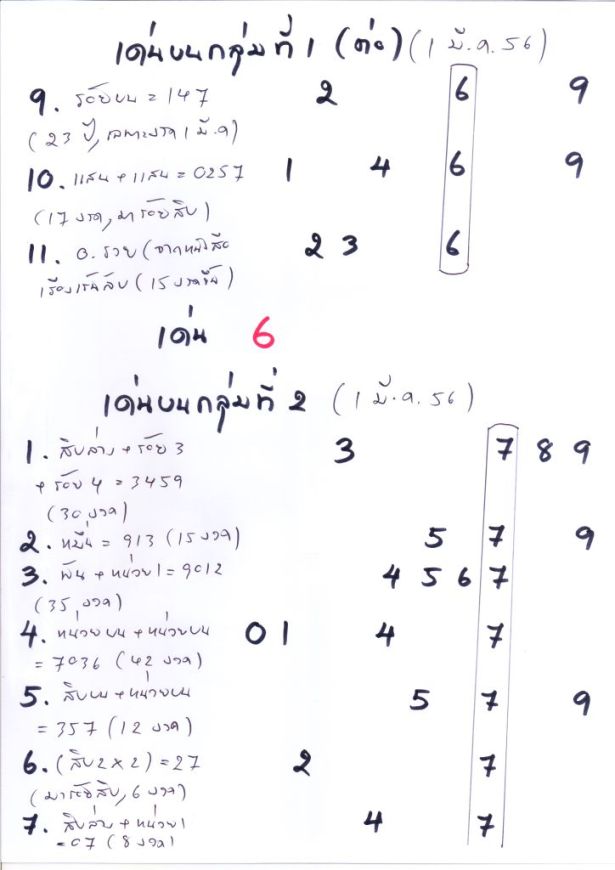 เด่นบนกลุ่มที่ 1 (ต่อ) (1 มี.ค. 56)
9. ร้อยบน = 147 2 6 9
(23 ปี, เฉพาะงวด 1 มี.ค)
10. แสน + แสน = 0257 1 4 6 9
(17 งวด, มาร้อยสิบ)
11. อ. รวย (จากหนังสือ 2 3 6
(15 งวดขึ้น)
เด่น 6
เด่นบนกลุ่มที่ 2 (1 มี.ค. 56)
1. สิบล่าง + ร้อย 3 3 7 8 9
+ ร้อย 4 = 3459
(30 งวด)
2. หมื่น = 913 (15 งวด) 5 7 9
3. พัน + หน่วย 1 = 9012 4 5 6 7
(35 งวด)
4. หน่วยบน + หน่วยบน 0 1 4 7
= 7036 (42 งวด)
5. สิบบน + หน่วยบน 5 7 9
= 357 (12 งวด)
6. (สิบ 2 x 2) = 27 2 7
(มาร้อยสิบ, 6 งวด)
7. สิบล่าง + หน่วย 1 4 7
= 07 (8 งวด)